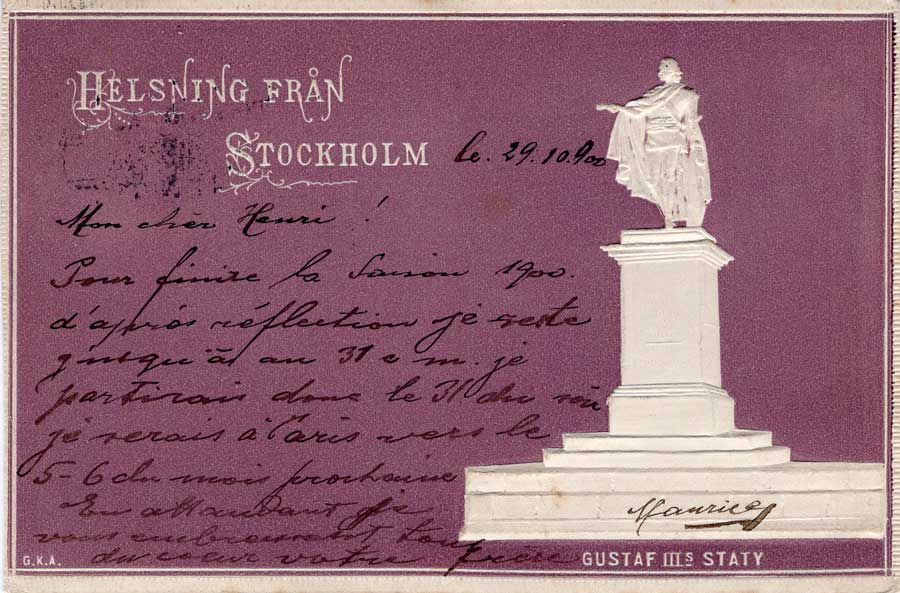 HELSNING FRÅN
STOCKHOLM
le. 29.10.900
Mon chèr Henri !
Pour finire la Saison 1900.
d'après réflection je reste
jusqu'à au 31 c m. je
partirais donc le 31 du soir
je serais à Paris vers le
5-6 du mois prochaine
En attandant je
vous embrassent tous
du coeur votre frère
Maurice
G.K.A.
GUSTAF III S STATY